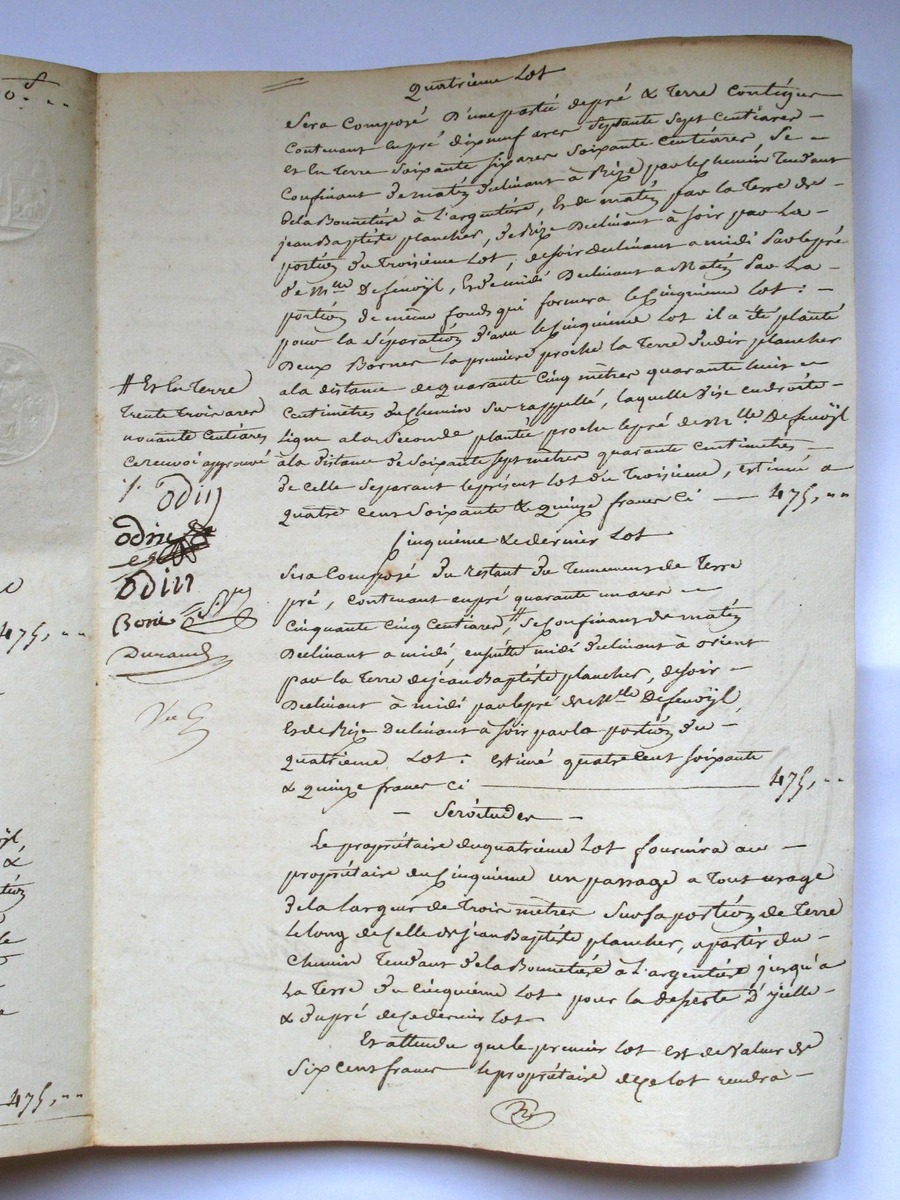 Quatrieme Lot
Sera Composé D'une partie de pré & Terre Contigue
Contenant en pré dix neuf ares Septante Sept Centiares –
et En Terre Soixante Six ares Soixante Centiares, Se –
Confinant de matin declinant à Bize par le Chemin Tendant
de la Bonnetière à L'argentière, Et de matin par la Terre de –
jean Baptiste plancher, de Bize Declinant à Soir par La –
portion du Troisieme Lot, de soir declinant a midi par le pré
de Mlle Defenoÿl, Et de midi Declinant a Matin Par La –
portion de même fonds qui formera le Cinquieme Lot : –
pour la Séparation d'avec le Cinquieme Lot il a été planté
Deux Bornes La premiere proche la Terre dudit plancher
a la distance de quarante Cinq mètres quarante huit –
Centimètres du Chemin Sus rappellé, laquelle Vise en droite –
Ligne a la Seconde plantée proche le pré de Mlle Defenoÿl
à la distance de Soixante Sept mètres quarante Centimètres –
de celle Separant le present Lot du Troisieme, estimée a
Quatre Cent Soixante & Quinze francs Ci — 475, "
Cinquieme & dernier Lot
Sera Composé du restant du Tennement de Terre
pré, Contenant en pré quarante un ares –
Cinquante Cinq Centiares, # Se Confinant de matin
Declinant a midi, ensuite midi declinant à orient
par la Terre de jean Baptiste plancher, de soir –
Declinant à midi par le pré de Mlle Defenoÿl,
Et de Bize Declinant à Soir par la portion du –
quatrieme Lot : Estimé quatre Cent Soixante
& Quinze francs Ci — 475, "
– Servitudes –
Le propriétaire du quatrieme Lot fournira au –
propriétaire du Cinquieme un passage a Tout usage
de la Largeur de Trois mètres Sur Sa portion de Terre
le long de Celle de jean Baptiste plancher, a partir du –
Chemin Tendant de la Bonnetière à L'argentière jusqu'a
La Terre du Cinquieme Lot pour la deserte D'ycelle –
& du pré de Ce dernier Lot
Et attendu que le premier Lot est de Valeur de
Six Cent francs le propriétaire de Ce Lot rendra –
# Et En Terre
Trente Trois ares
nonante Centiares
Ce renvoi approuvé
odin
odin
odin
Borie
Durand
475, "
475, "